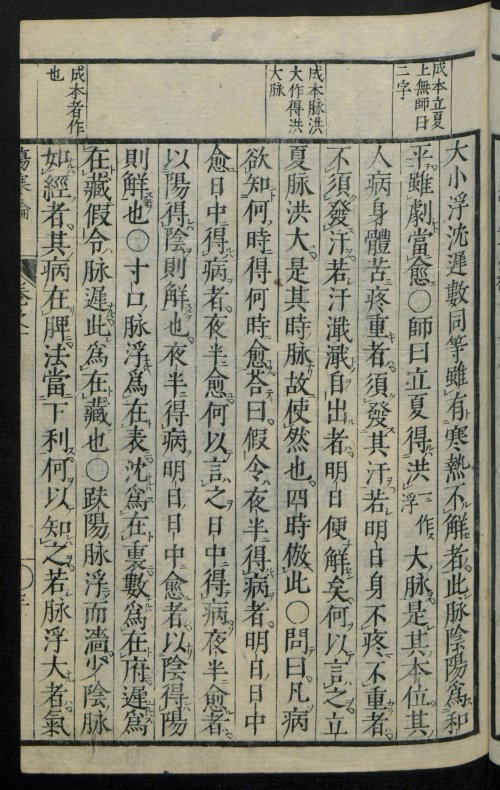 成本立夏
上無師曰
二字
成本脉洪
大作得洪
大脉
成本者作
也
大小浮沈遲數同等雖有寒熱不解者此脉陰陽爲和
平雖劇當愈○師曰立夏得洪一作浮大脉是其本位其
人病身體苦疼重者須發其汗若明日身不疼不重者
不須發汗若汗濈濈自出者明日便解矣何以言之立
夏脉洪大是其時脉故使然也四時倣此○問曰凡病
欲知何時得何時愈荅曰假令夜半得病者明日日中
愈日中得病者夜半愈何以言之日中得病夜半愈者
以陽得陰則解也夜半得病明日日中愈者以陰得陽
則解也○寸口脉浮爲在表沈爲在裏數爲在府遲爲
在藏假令脉遲此爲在藏也○趺陽脉浮而濇少陰脉
如經者其病在脾法當下利何以知之若脉浮大者氣
傷寒論